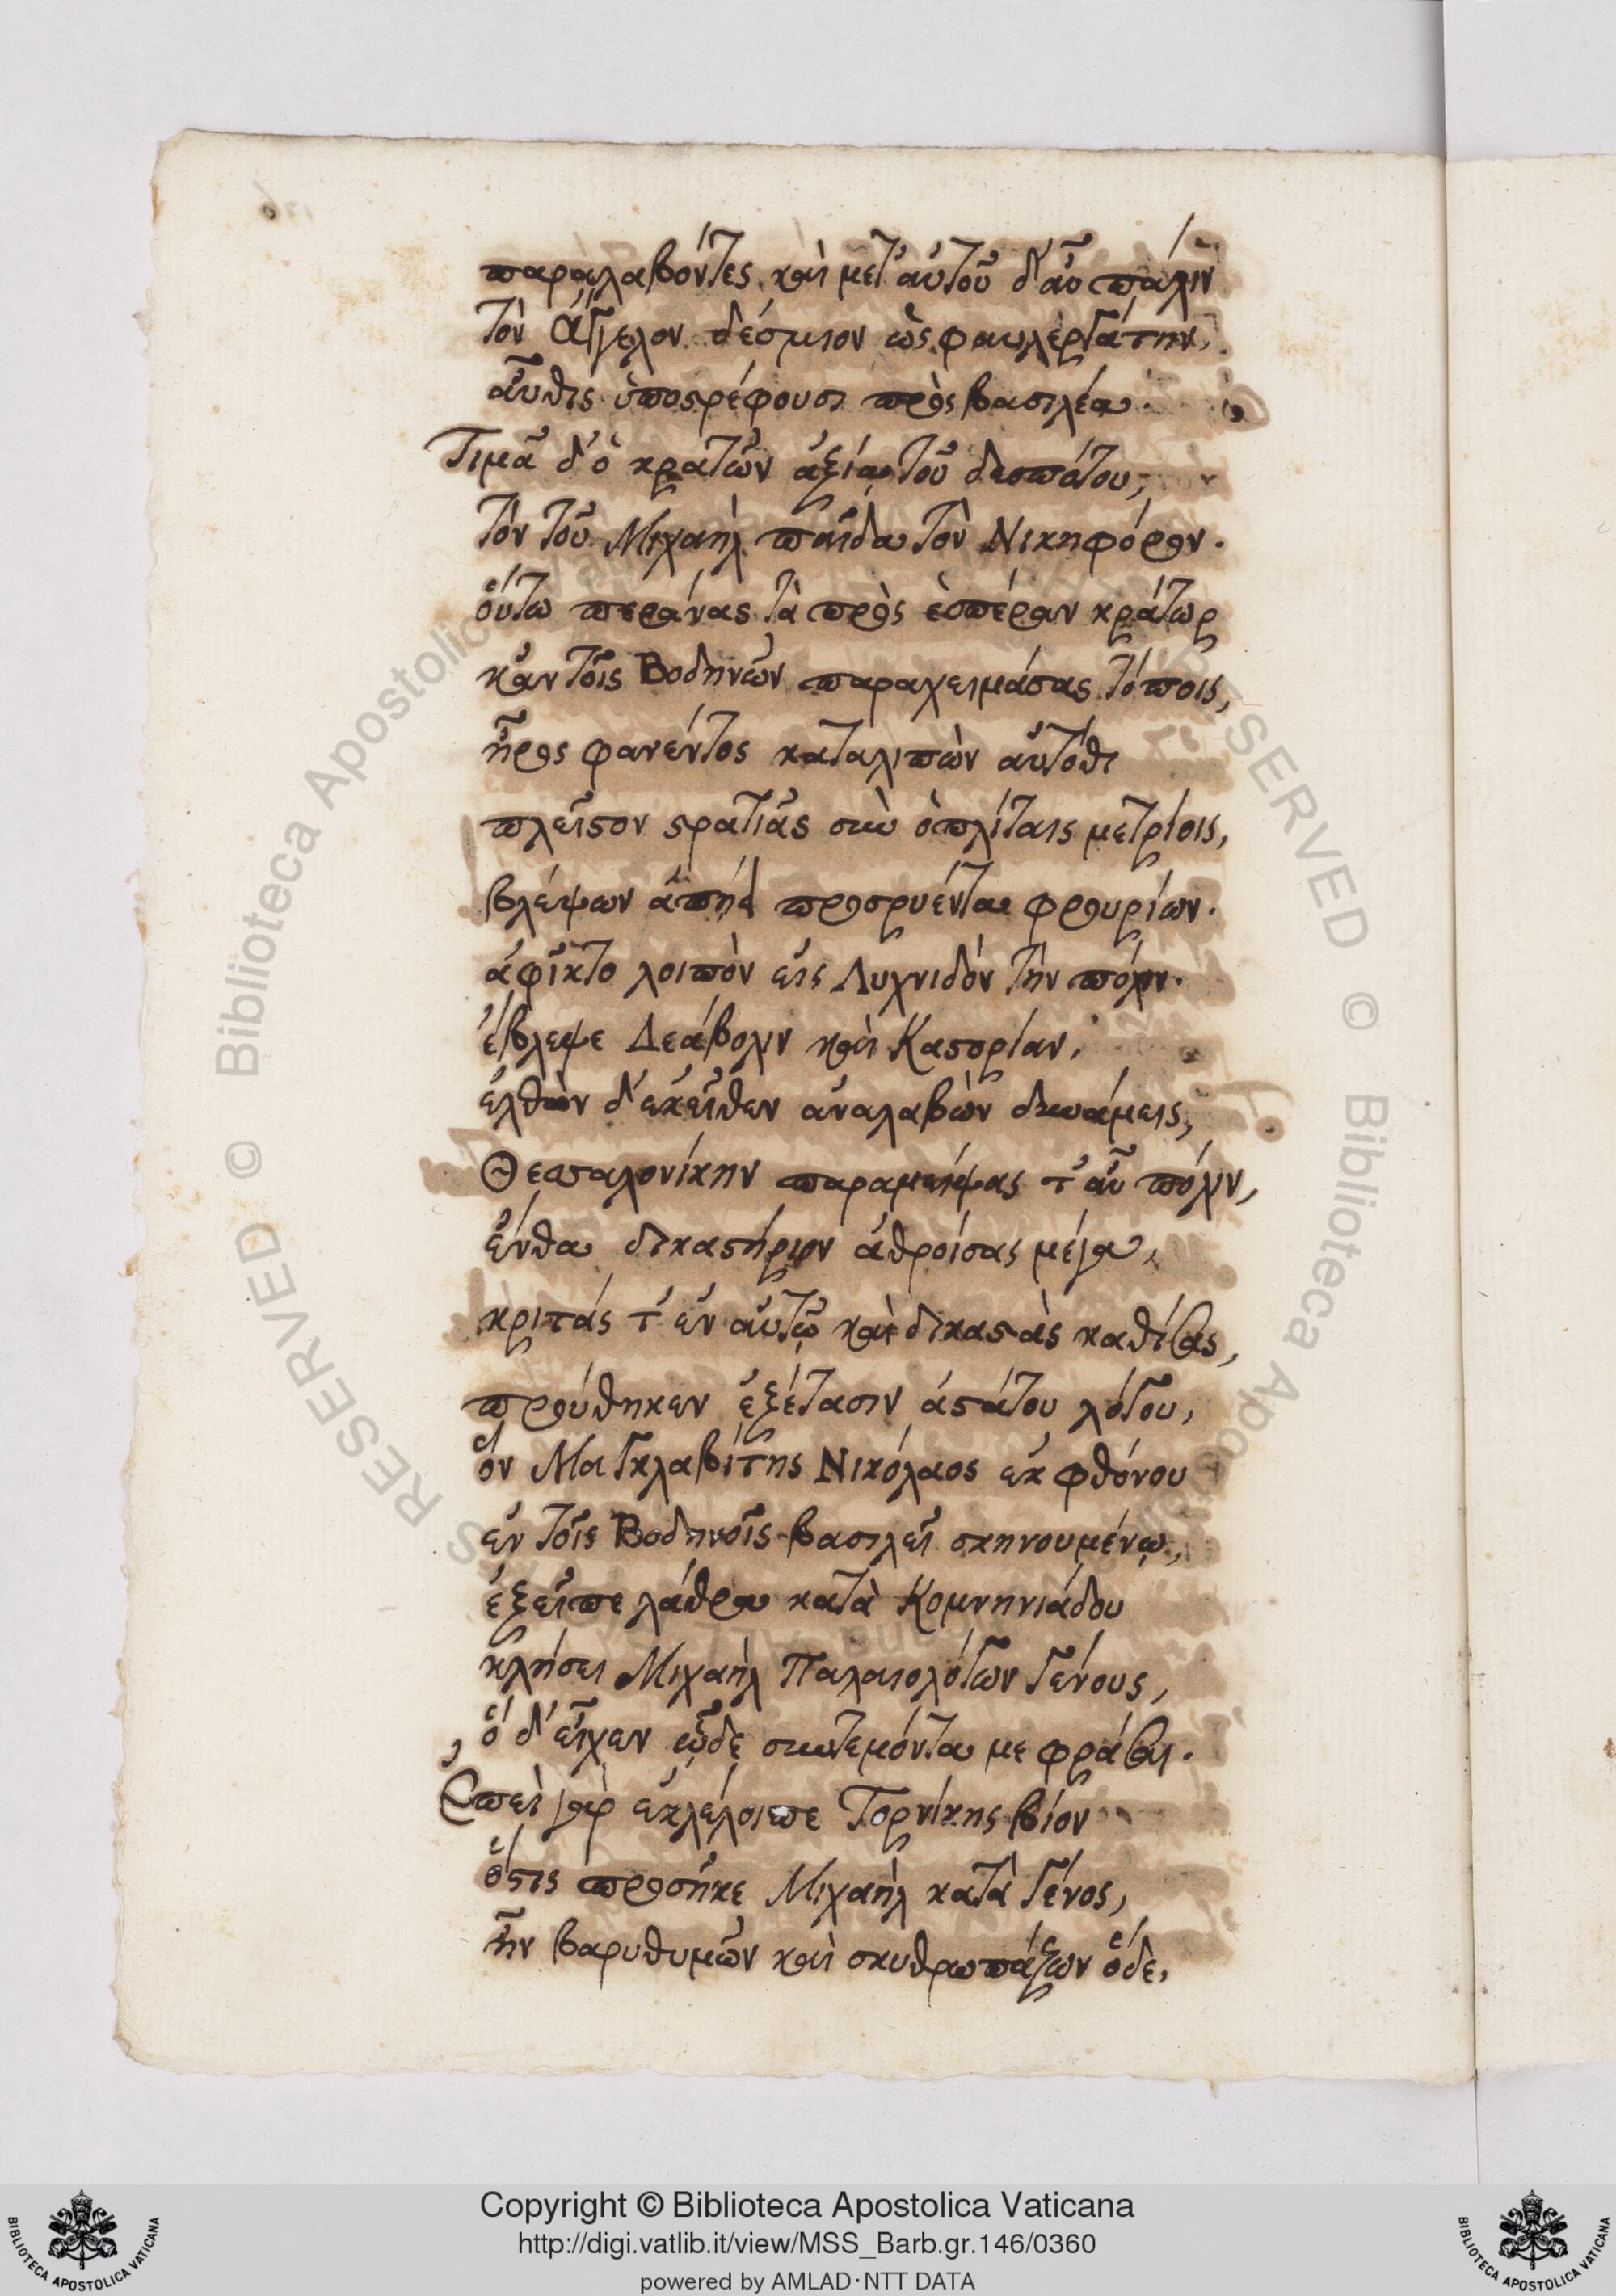 παραλαβόντες καὶ μετ' αὐτοῦ δ' αὖ πάλιν
τὸν Ἄγγελον δέσμιον ὡς φαυλεργάτην,
αὖθις ὑποστρέφουσι πρὸς βασιλέα.
Τιμᾶ δ' ὁ κρατῶν ἀξίᾳ τοῦ δεσπότου,
τὸν τοῦ Μιχαὴλ παῖδα τὸν Νικηφόρον.
οὕτω περάνας τὰ πρὸς ἑσπέραν κράτωρ
κἂν τοῖς Βοδηνῶν παραχειμάσας τόποις,
ἦρος φανέντος καταλιπὼν αὐτόθι
πλεῖστον στρατιᾶς σὺν ὁπλίταις μετρίοις,
βλέψων ἀπῄει προσρυέντα φρουρίων.
ἀφῖκτο λοιπὸν εἰς Λυχνιδὸν τὴν πόλιν.
ἔβλεψε Δεάβολιν καὶ Καστορίαν,
ἐλθὼν δ' ἐκεῖθεν ἀναλαβὼν δυνάμεις,
Θεσσαλονίκην παραμείψας τ' αὖ πόλιν,
ἔνθα δικαστήριον ἀθροίσας μέγα,
κριτάς τ' ἐν αὐτῷ καὶ δικαστὰς καθίσας,
προύθηκεν ἐξέτασιν ἀστάτου λόγου,
ὃν Μαγκλαβίτης Νικόλαος ἐκ φθόνου
ἐν τοῖς Βοδηνοῖς βασιλεῖ σκηνουμένῳ,
ἐξεῖπε λάθρα κατὰ Κομνηνιάδου
κλήσει Μιχαὴλ Παλαιολόγων γένους,
ὁ δ' εἶχεν ὧδε συντεμόντα με φράσαι.
Ἐπεὶ γὰρ ἐκλέλοιπε Τορνίκης βίον
ὅστις προσῆκε Μιχαὴλ κατὰ γένος,
ἦν βαρυθυμῶν καὶ σκυθρωπάζων ὅδε,
Copyright © Biblioteca Apostolica Vaticana
http://digi.vatlib.it/view/MSS_Barb.gr.146/0360
powered by AMLAD·NTT DATA
BIBLIOTECA APOSTOLICA VATICANA
BIBLIOTECA APOSTOLICA VATICANA